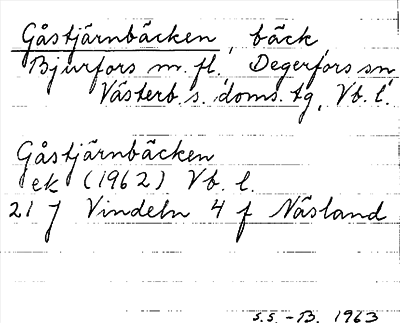 Gåstjärnbäcken, bäck,
Bjurfors m.fl. Degerfors sn
Västerb. s. doms. tg, Vb. l.
Gåstjärnbäcken
ek (1962) Vb. l.
21 J Vindeln 4 f Näsland
S.S. - B. 1963